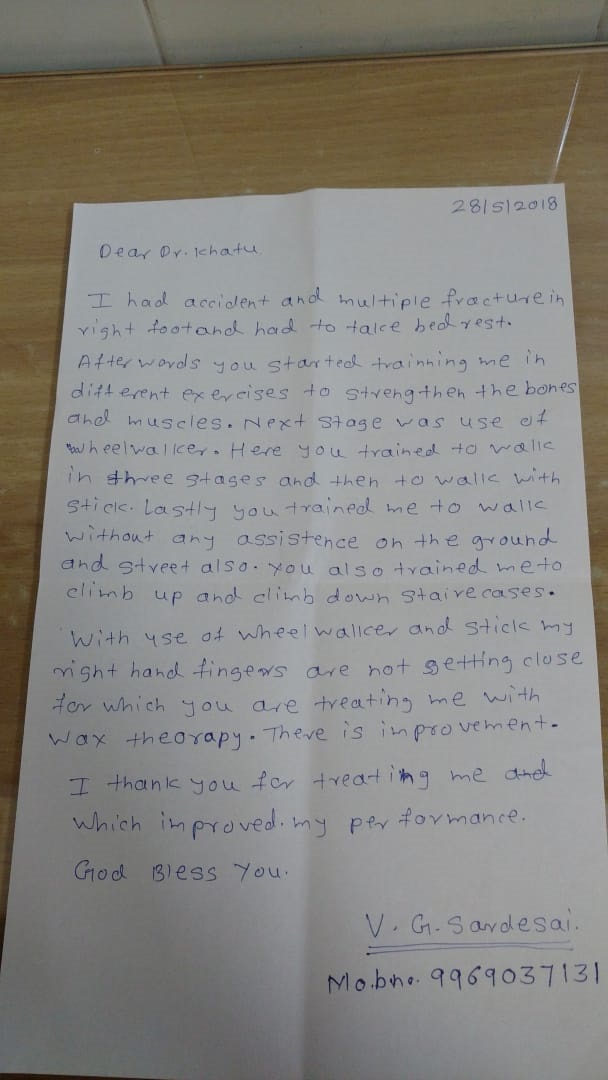 28/5/2018
Dear Dr. Khatu
I had accident and multiple fracture in
right foot and had to take bed rest.
After words you started trainning me in
different exercises to strengthen the bones
and muscles. Next stage was use of
wheelwalker. Here you trained to walk
in three stages and then to walk with
stick. Lastly you trained me to walk
without any assistence on the ground
and street also. you also trained me to
climb up and climb down staire cases.
With use of wheel walker and stick my
right hand fingers are not getting close
for which you are treating me with
wax theorapy. There is improvement.
I thank you for treating me and
which improved my performance.
God Bless You.
V. G. Sardesai.
Mo.bno. 9969037131